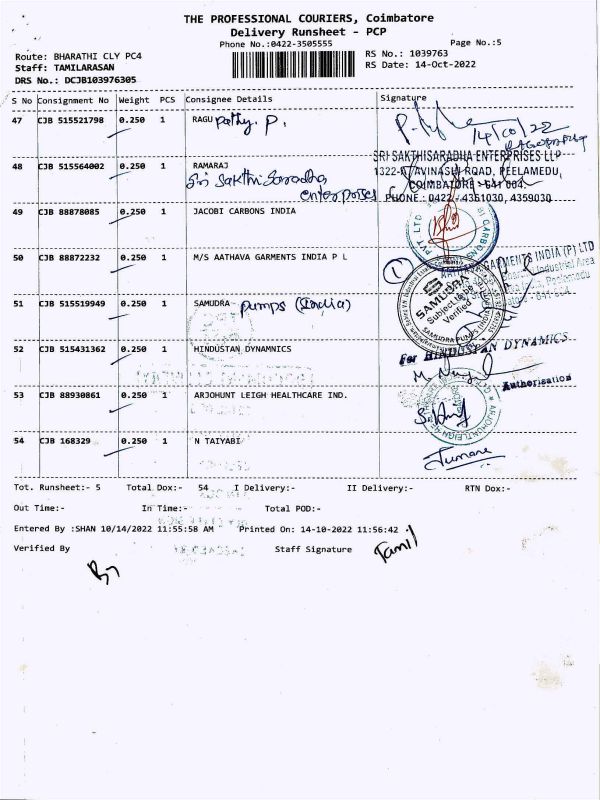 THE PROFESSIONAL COURIERS, Coimbatore
Delivery Runsheet - PCP
Phone No.:0422-3505555
Page No.:5
Route: BHARATHI CLY PC4
Staff: TAMILARASAN
DRS No.: DCJB103976305
RS No.: 1039763
RS Date: 14-Oct-2022
S No Consignment No Weight PCS Consignee Details Signature
47 CJB 515521798 0.250 1 RAGU pathy. P.
14/10/22
48 CJB 515564002 0.250 1 RAMARAJ
Sri Sakthi Saradha
enterprises
SRI SAKTHISARADHA ENTERPRISES LLP
AVINASHI ROAD, PEELAMEDU,
COIMBATORE - 641 004.
PHONE : 0422 - 4351030, 4359030
49 CJB 88878085 0.250 1 JACOBI CARBONS INDIA
50 CJB 88872232 0.250 1 M/S AATHAVA GARMENTS INDIA P L
GARMENTS INDIA (P) LTD
Industrial Area
51 CJB 515519949 0.250 1 SAMUDRA pumps (India)
SAMUDRA
Subject to
52 CJB 515431362 0.250 1 HINDUSTAN DYNAMNICS
For HINDUSTAN DYNAMICS
Authorisation
53 CJB 88930861 0.250 1 ARJOHUNT LEIGH HEALTHCARE IND.
54 CJB 168329 0.250 1 N TAIYABI
Tot. Runsheet:- 5 Total Dox:- 54 I Delivery:- II Delivery:- RTN Dox:-
Out Time:- In Time:- Total POD:-
Entered By :SHAN 10/14/2022 11:55:58 AM Printed On: 14-10-2022 11:56:42
Verified By Staff Signature Tamil